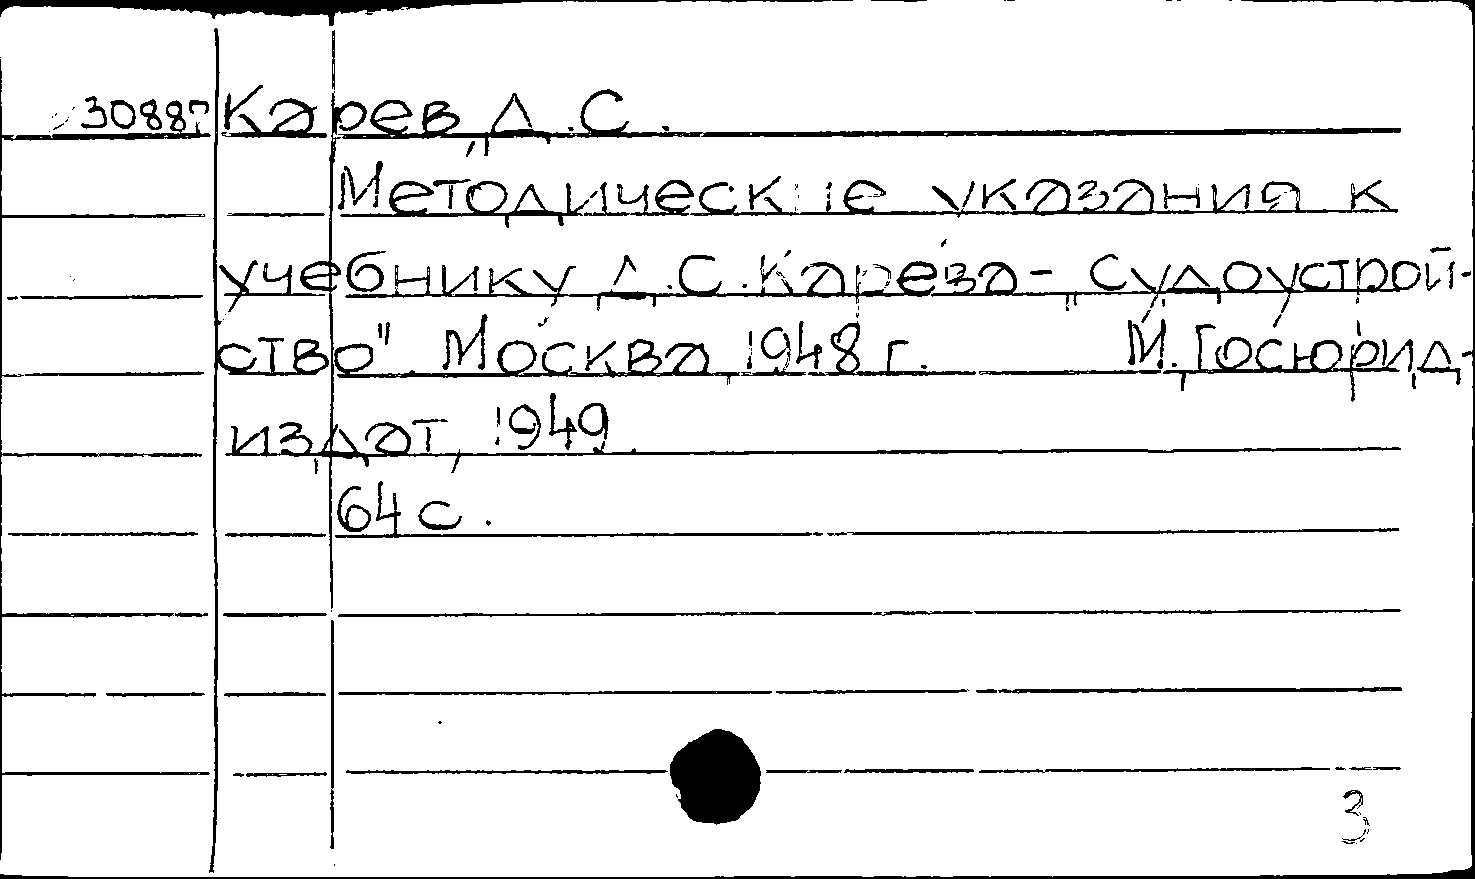 30887 Карев, Д.С.
Методические указания к
учебнику Д.С.Карева- „Судоустрой-
ство". Москва, 1948 г. М. Госюрид-
издат, 1949.
64 с.
3